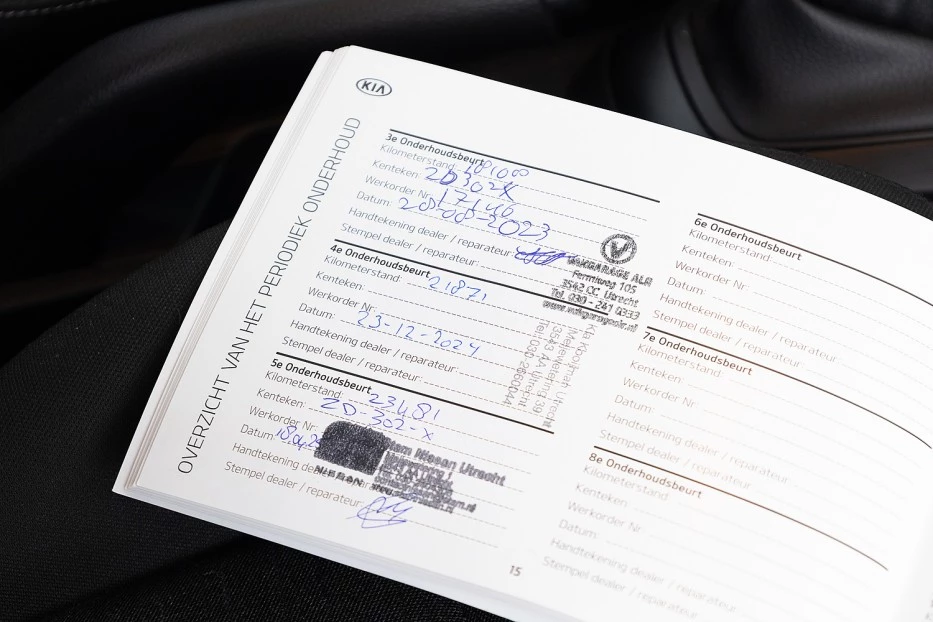 KIA
OVERZICHT VAN HET PERIODIEK ONDERHOUD
3e Onderhoudsbeurt
Kilometerstand:
Kenteken: ZD302X
Werkorder Nr: 17146
Datum: 2023
Handtekening dealer / reparateur:
Stempel dealer / reparateur:
VAKGARAGE ALR
Fermiweg 105
3542 CC Utrecht
Tel. 030 - 241 0333
4e Onderhoudsbeurt
Kilometerstand: 21871
Kenteken:
Werkorder Nr:
Datum: 23-12-2024
Handtekening dealer / reparateur:
Stempel dealer / reparateur:
Kia Kooijman Utrecht
5e Onderhoudsbeurt
Kilometerstand: 23481
Kenteken: ZD-302-X
Werkorder Nr:
Datum:
Handtekening dealer / reparateur:
Stempel dealer / reparateur:
Nissan Utrecht
6e Onderhoudsbeurt
Kilometerstand:
Kenteken:
Werkorder Nr:
Datum:
Handtekening dealer / reparateur:
Stempel dealer / reparateur:
7e Onderhoudsbeurt
Kilometerstand:
Kenteken:
Werkorder Nr:
Datum:
Handtekening dealer / reparateur:
Stempel dealer / reparateur:
8e Onderhoudsbeurt
Kilometerstand:
Kenteken:
Werkorder Nr:
Datum:
Handtekening dealer / reparateur:
Stempel dealer / reparateur:
15